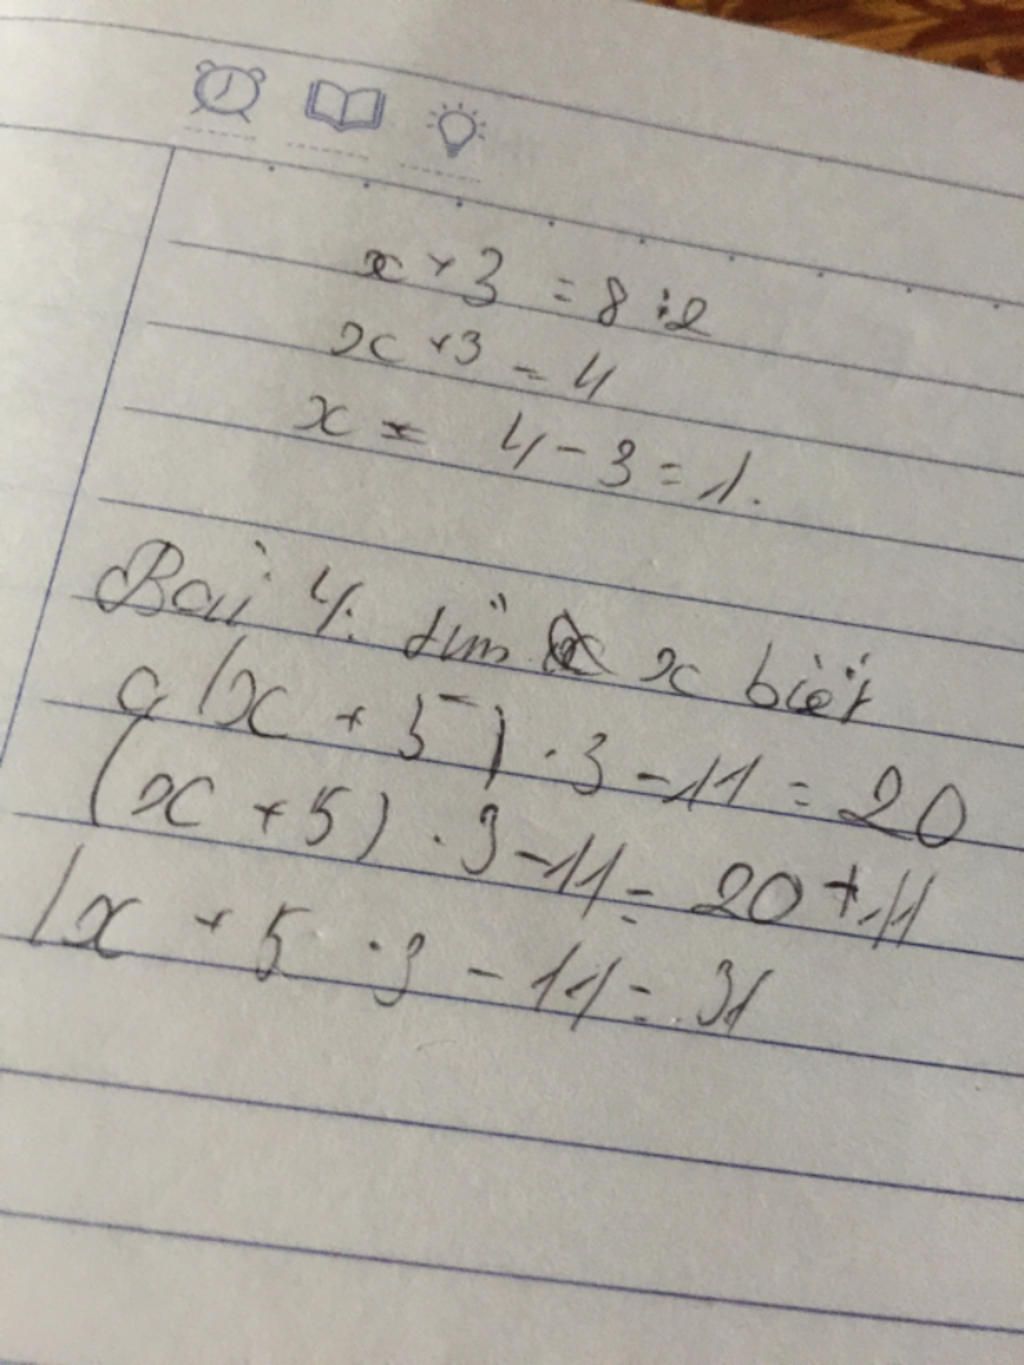 x + 3 = 8 : 2
x + 3 = 4
x = 4 - 3 = 1.
Bài 4: tìm x biết
a (x + 5) . 3 - 11 = 20
(x + 5) . 3 - 11 = 20 + 11
(x + 5 . 3 - 11 = 31